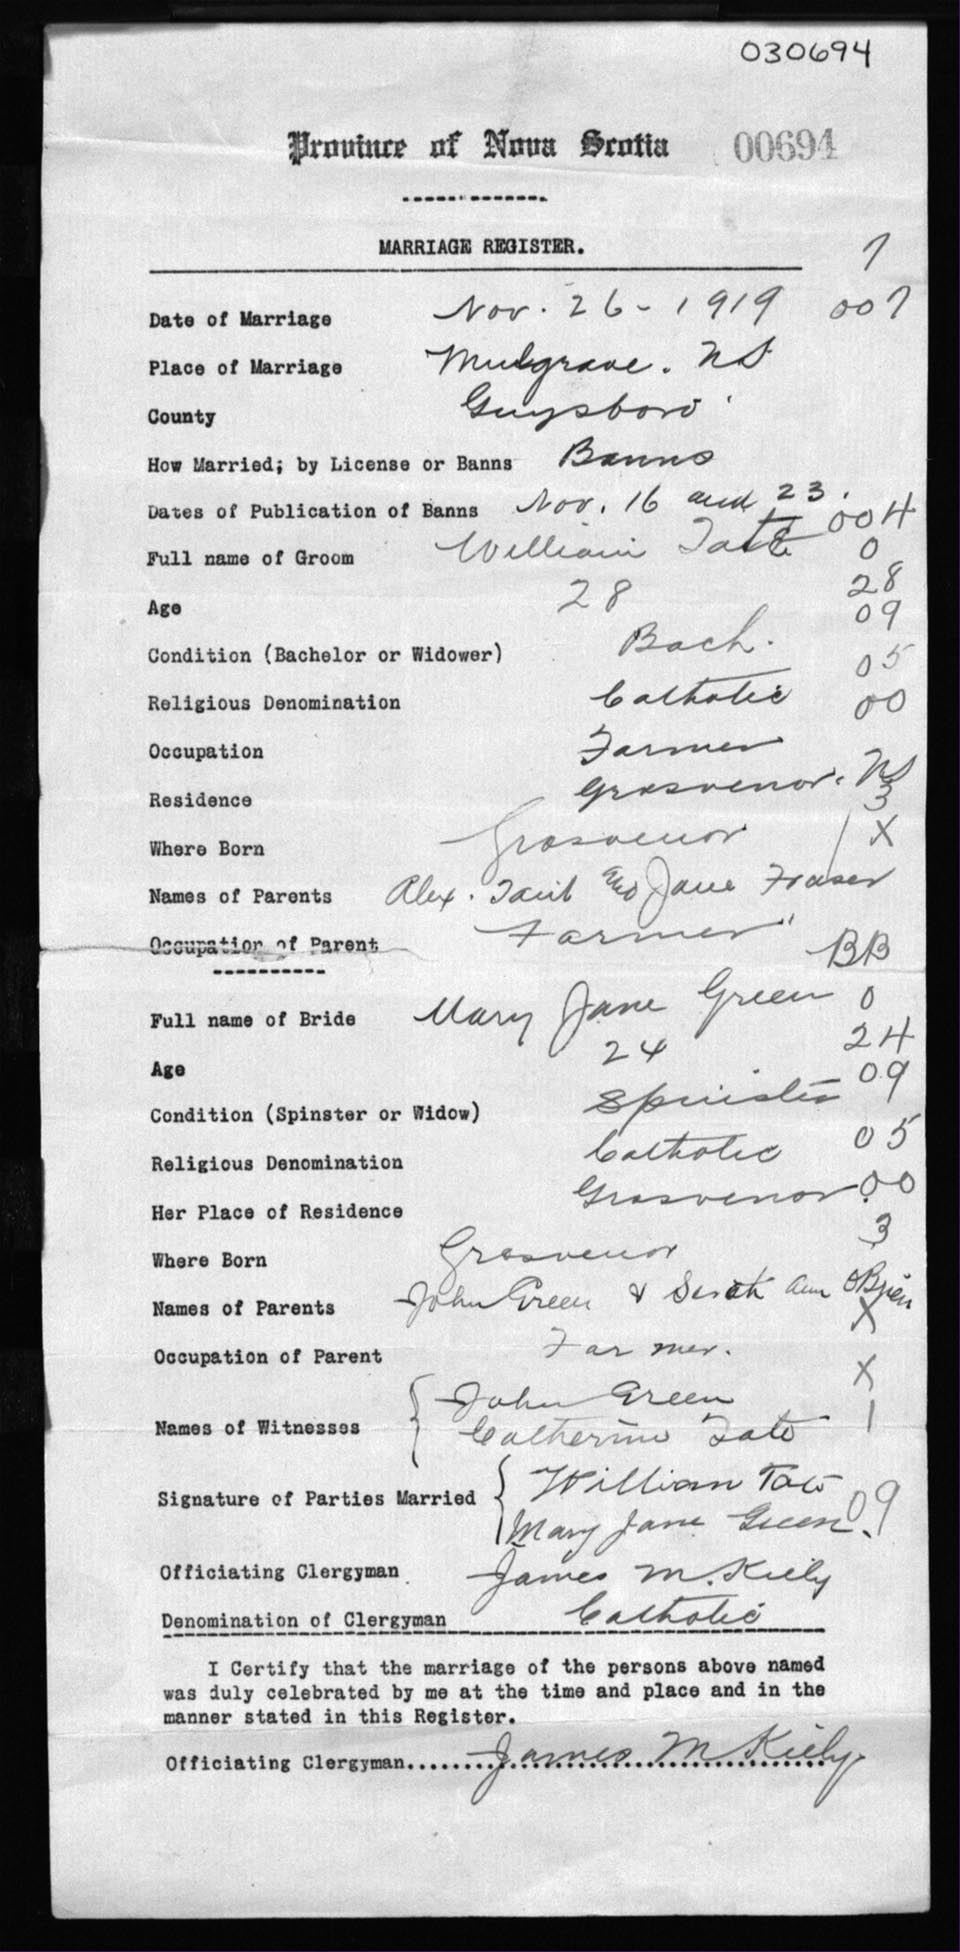 030694
Province of Nova Scotia 00694
MARRIAGE REGISTER. 7
Date of Marriage Nov. 26 - 1919 007
Place of Marriage Mulgrave. NS
County Guysboro
How Married; by License or Banns Banns
Dates of Publication of Banns Nov. 16 and 23. 004
Full name of Groom William 0
Age 28 28
09
Condition (Bachelor or Widower) Bach. 05
Religious Denomination Catholic 00
Occupation Farmer
Residence Grosvenor. NS
3
Where Born Grosvenor X
Names of Parents Alex. Tait and Jane Fraser
Occupation of Parent Farmer
BB
Full name of Bride Mary Jane Green 0
Age 24 24
09
Condition (Spinster or Widow) Spinster
05
Religious Denomination Catholic
Her Place of Residence Grosvenor. 00
3
Where Born Grosvenor
Names of Parents John Green & Sarah Ann OBrien
X
Occupation of Parent Farmer.
X
Names of Witnesses John Green 1
Catherine Tate
Signature of Parties Married William Tate 09
Mary Jane Green.
Officiating Clergyman. James M. Kiely
Denomination of Clergyman Catholic
I Certify that the marriage of the persons above named
was duly celebrated by me at the time and place and in the
manner stated in this Register.
Officiating Clergyman........James M Kiely